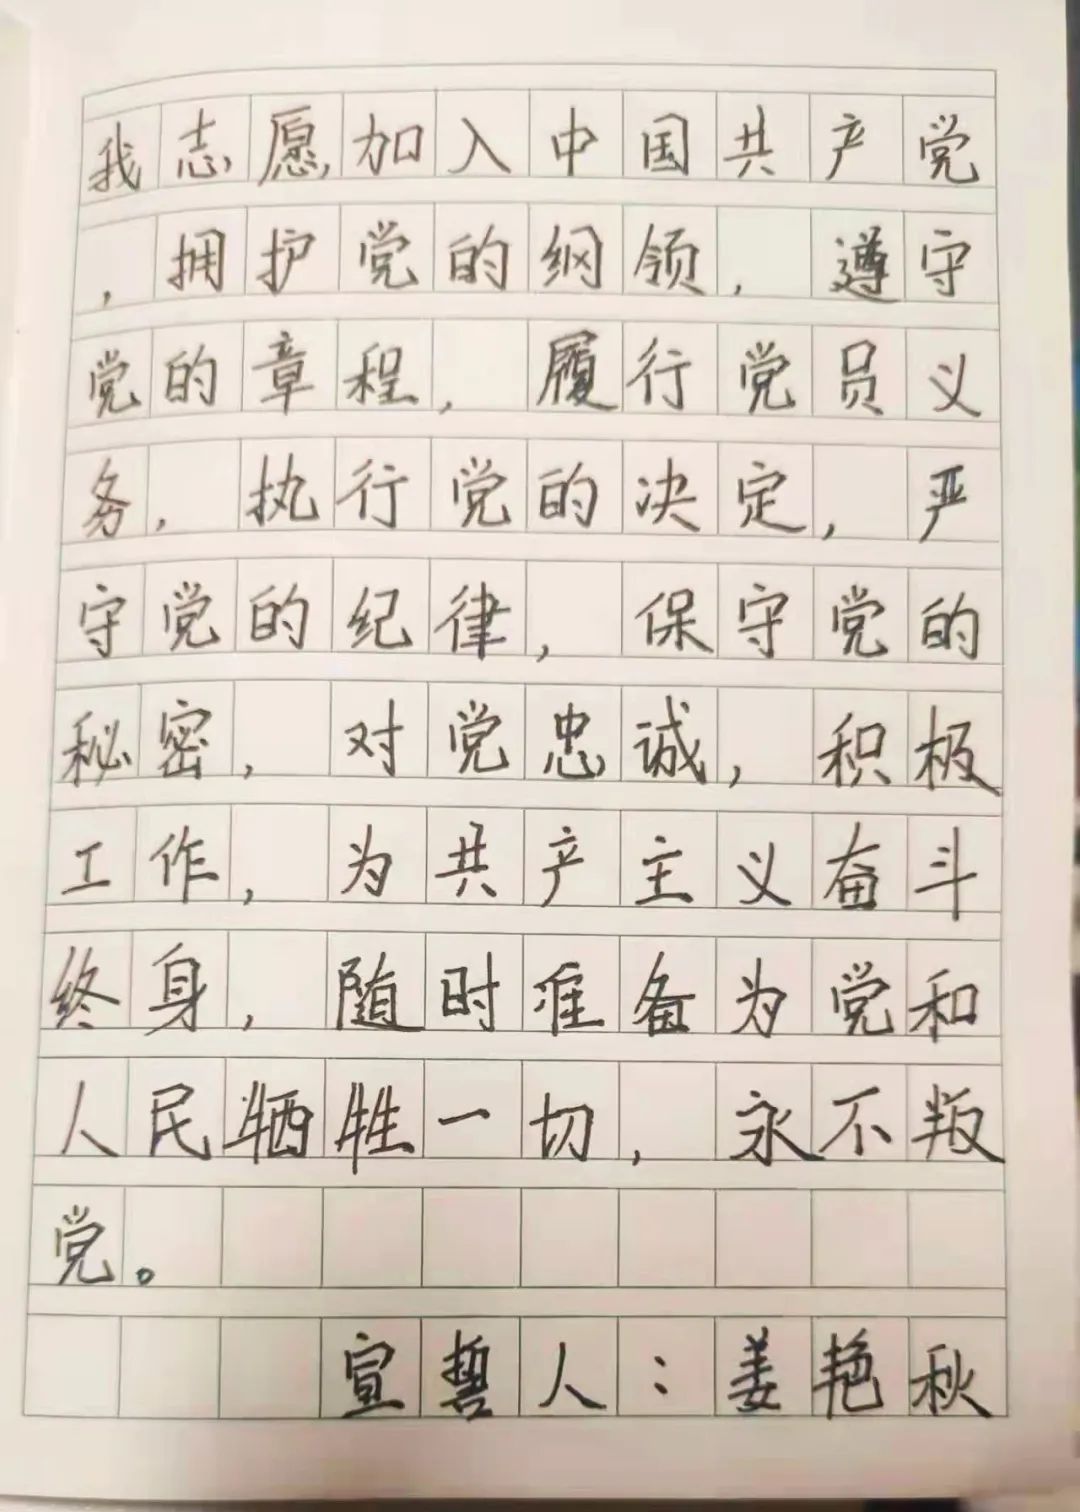 我志愿加入中国共产党
，拥护党的纲领，遵守
党的章程，履行党员义
务，执行党的决定，严
守党的纪律，保守党的
秘密，对党忠诚，积极
工作，为共产主义奋斗
终身，随时准备为党和
人民牺牲一切，永不叛
党。
宣誓人：姜艳秋